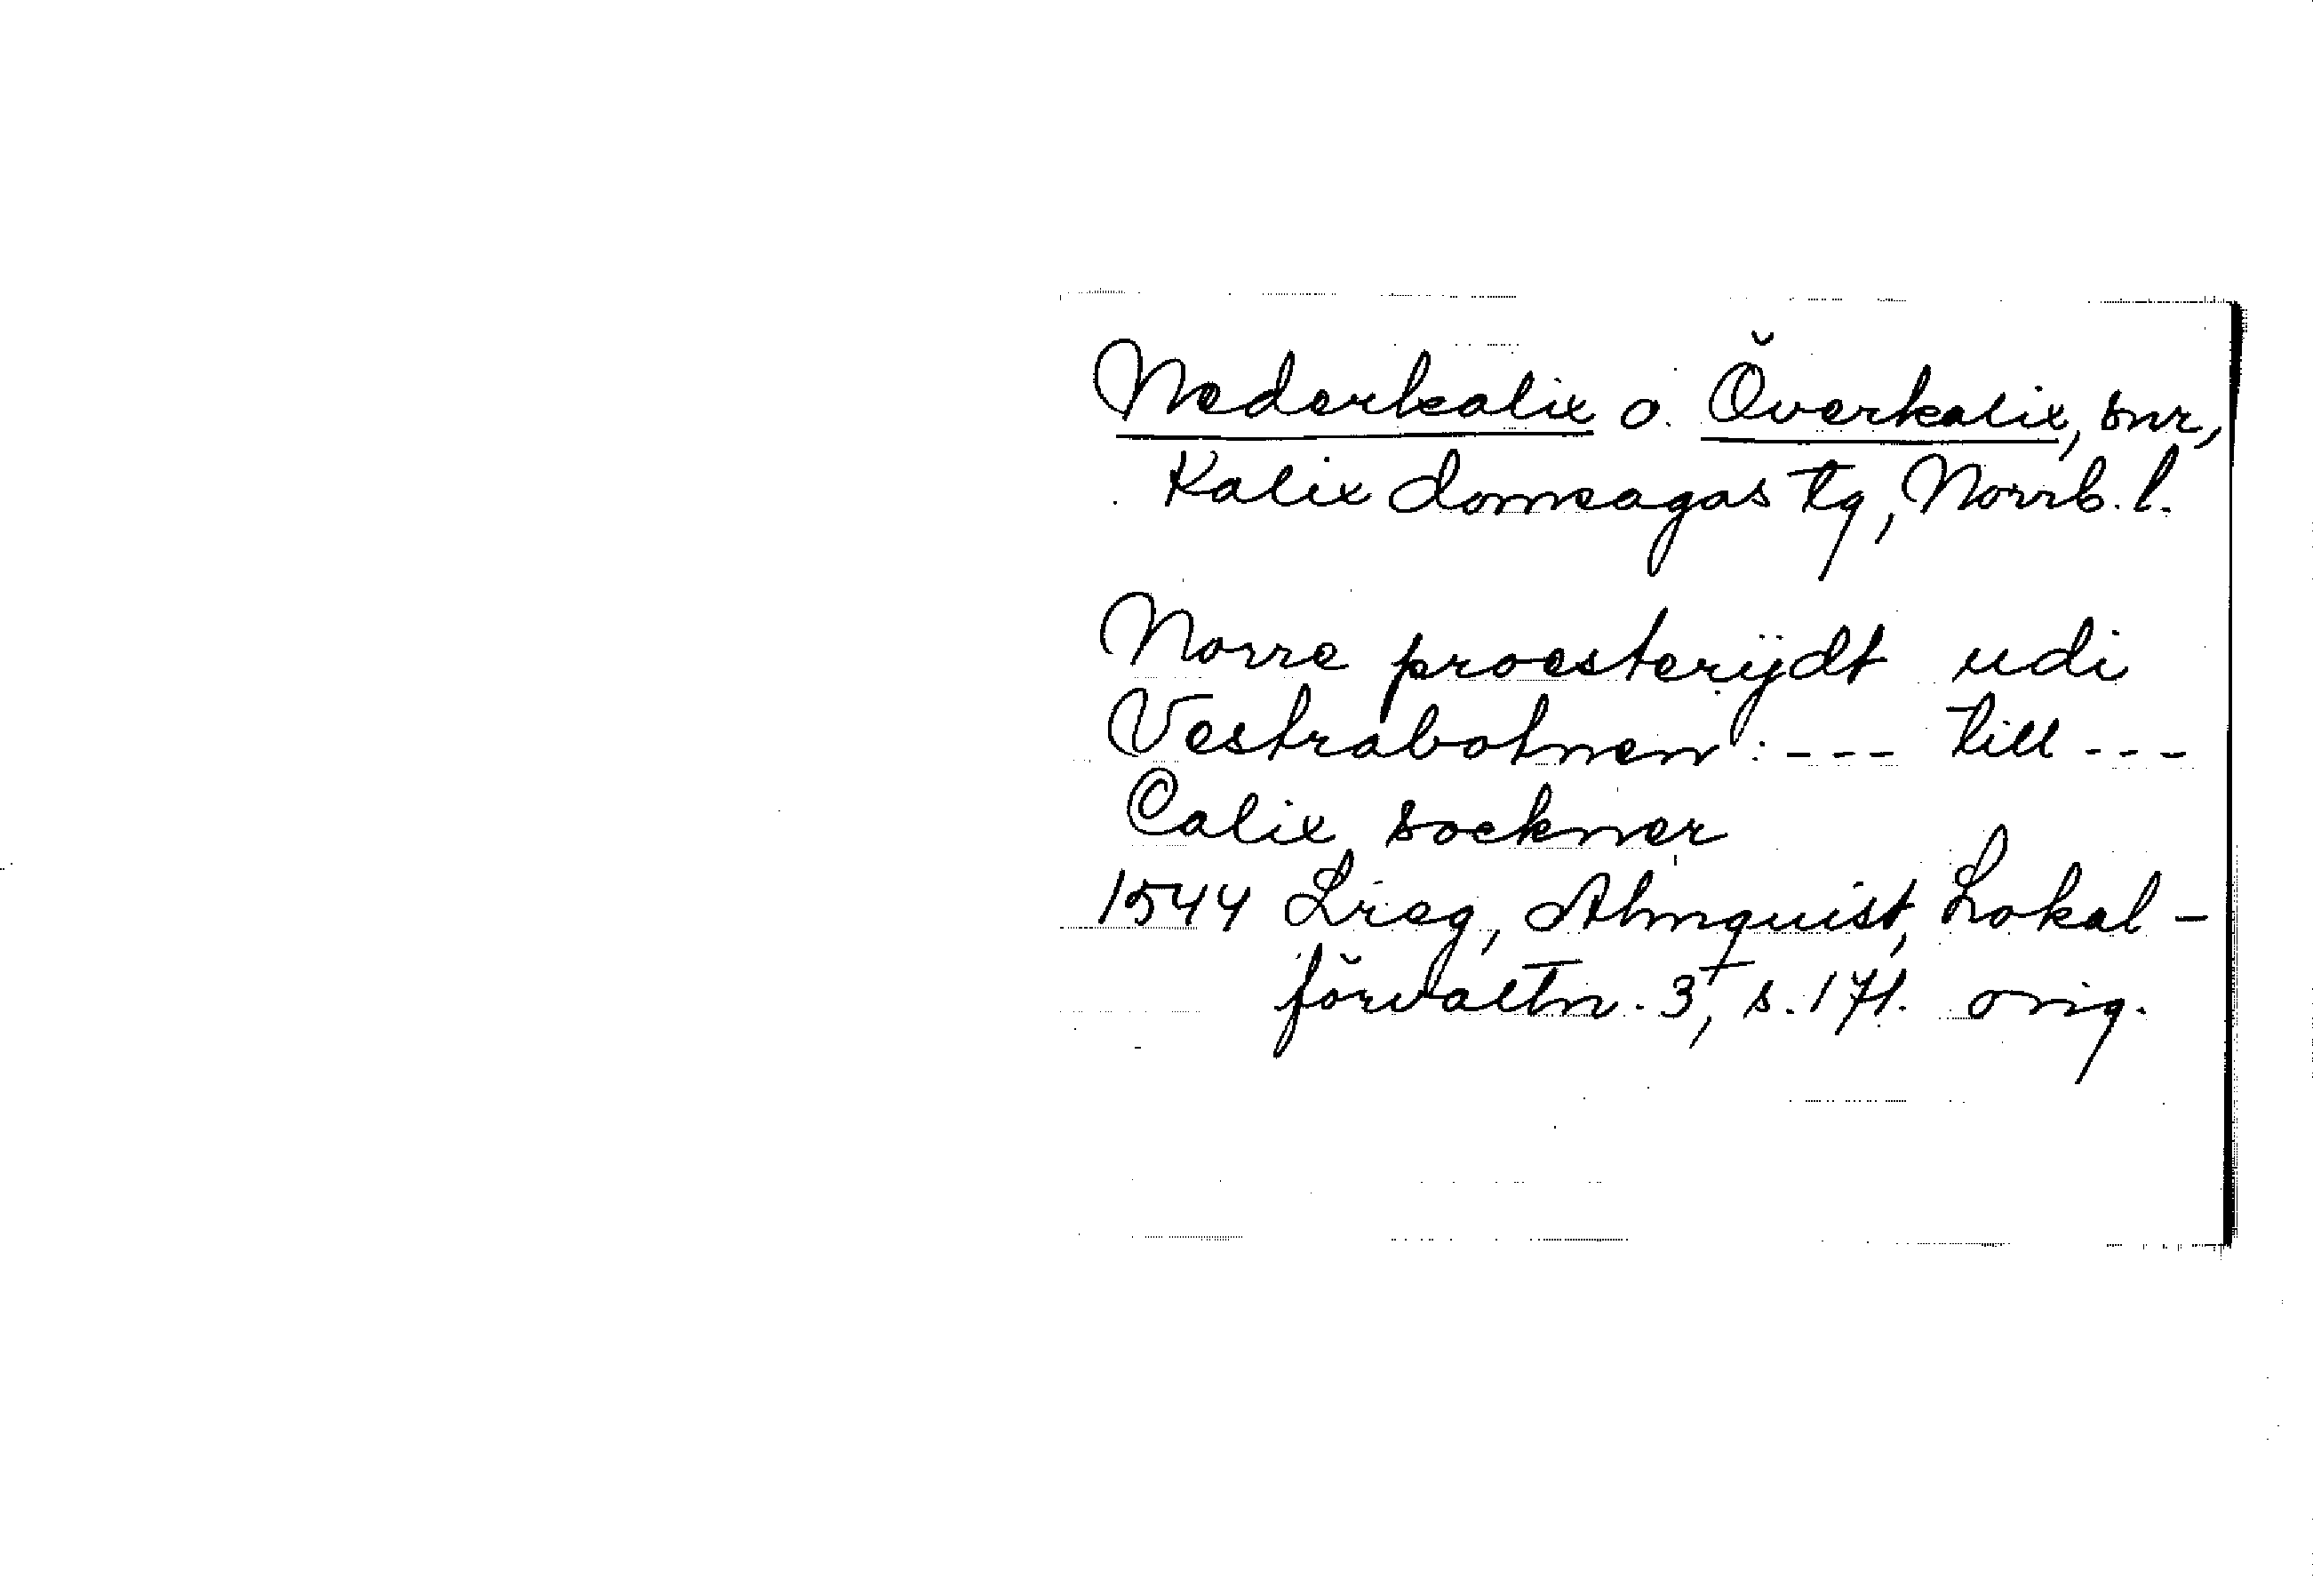 Nederkalix o. Överkalix, snr,
Kalix domsagas tg, Norrb. l.
Norre proesterijdt udi
Vestrabotnen: --- till ---
Calix sockner
1544 Lreg, Almquist, Lokal-
förvaltn. 3, s. 171. orig.